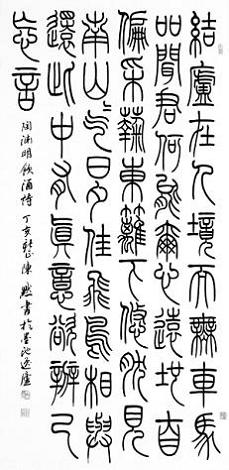 結廬在人境而無車馬
喧問君何能爾心遠地自
偏采菊東籬下悠然見
南山〻气日夕佳飛鳥相與
還此中有眞意欲辨已
忘言
陶淵明飲酒詩 丁亥 陳 書於墨池逸廬